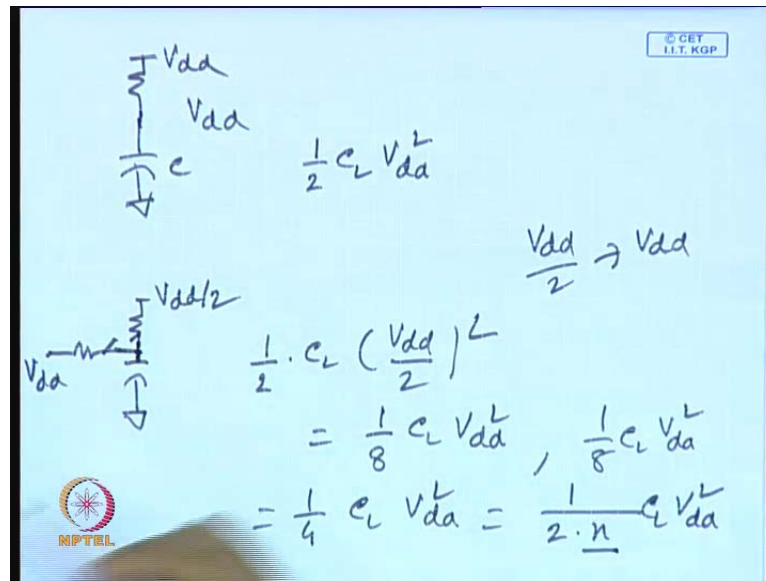 © CET
I.I.T. KGP
Vdd
Vdd
C
1/2 C_L Vdd²
Vdd/2 → Vdd
Vdd/2
Vdd
1/2 . C_L (Vdd/2)²
= 1/8 C_L Vdd² , 1/8 C_L Vdd²
= 1/4 C_L Vdd² = 1/(2.n) C_L Vdd²
NPTEL